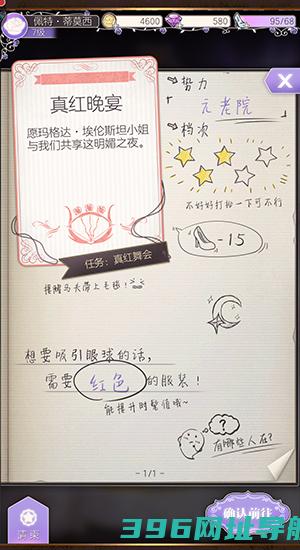 佩特·蒂莫西
7级
4600
580
95/68
真红晚宴
愿玛格达·埃伦斯坦小姐
与我们共享这明媚之夜。
任务：真红舞会
势力
元老院
档次
不好好打扮一下可不行
-15
提醒马夫带上毛毯！
想要吸引眼球的话，
需要 红色 的服装！
能提升时髦值哦~
?
有哪些人在?
- 1/1 -
请柬
确认前往
396网址导航